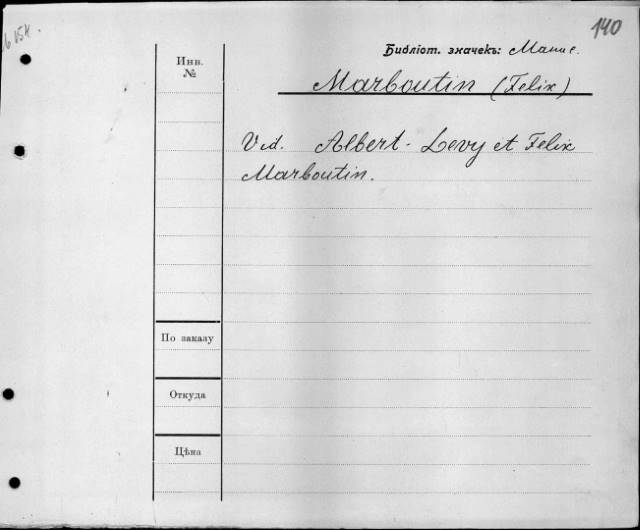 140
Инв.
№
Библіот. значекъ:
Marboutin (Felix)
Vid. Albert-Levy et Felix
Marboutin.
По заказу
Откуда
Цѣна